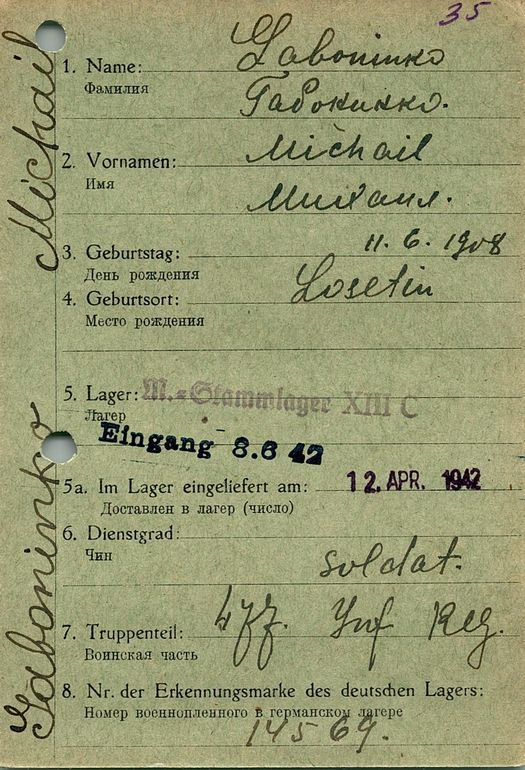 35
1. Name: Gaboninko
Фамилия Габонинко.
2. Vornamen: Michail
Имя Михаил.
3. Geburtstag: 11. 6. 1908
День рождения
4. Geburtsort: Losetin
Место рождения
5. Lager: M.-Stammlager XIII C
Лагер
Eingang 8.6 42
5a. Im Lager eingeliefert am: 12. APR. 1942
Доставлен в лагер (число)
6. Dienstgrad:
Чин soldat.
7. Truppenteil: 477. Inf Reg.
Воинская часть
8. Nr. der Erkennungsmarke des deutschen Lagers:
Номер военнопленного в германском лагере
14569.
Gaboninko Michail